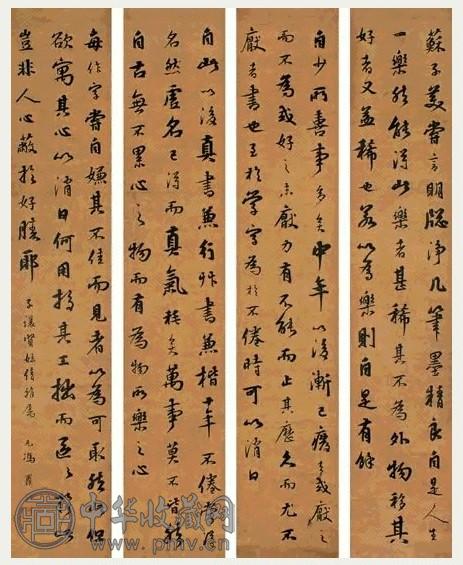 蘇子美嘗言明牕淨几筆墨精良自是人生
一樂然能得此樂者甚稀其不為外物移其
好者又益稀也若以為樂則自是有餘
自少所喜事多矣中年以後漸已廢多或厭之
而不為或好之未厭力有不能而止其歷久而尤不
厭者書也至於學字為於不倦時可以消日
自此以後真書兼行艸書兼楷十年不倦當得
名然虛名已得而真氣耗矣萬事莫不皆然
自古無不累心之物而有為物所樂之心
每作字嘗自嫌其不佳而見者以為可取然
欲寓其心以消日何用較其工拙而區々於此
豈非人心蔽於好勝耶
子讓賢姪倩雅屬
中华收藏网
www.pmv.cn